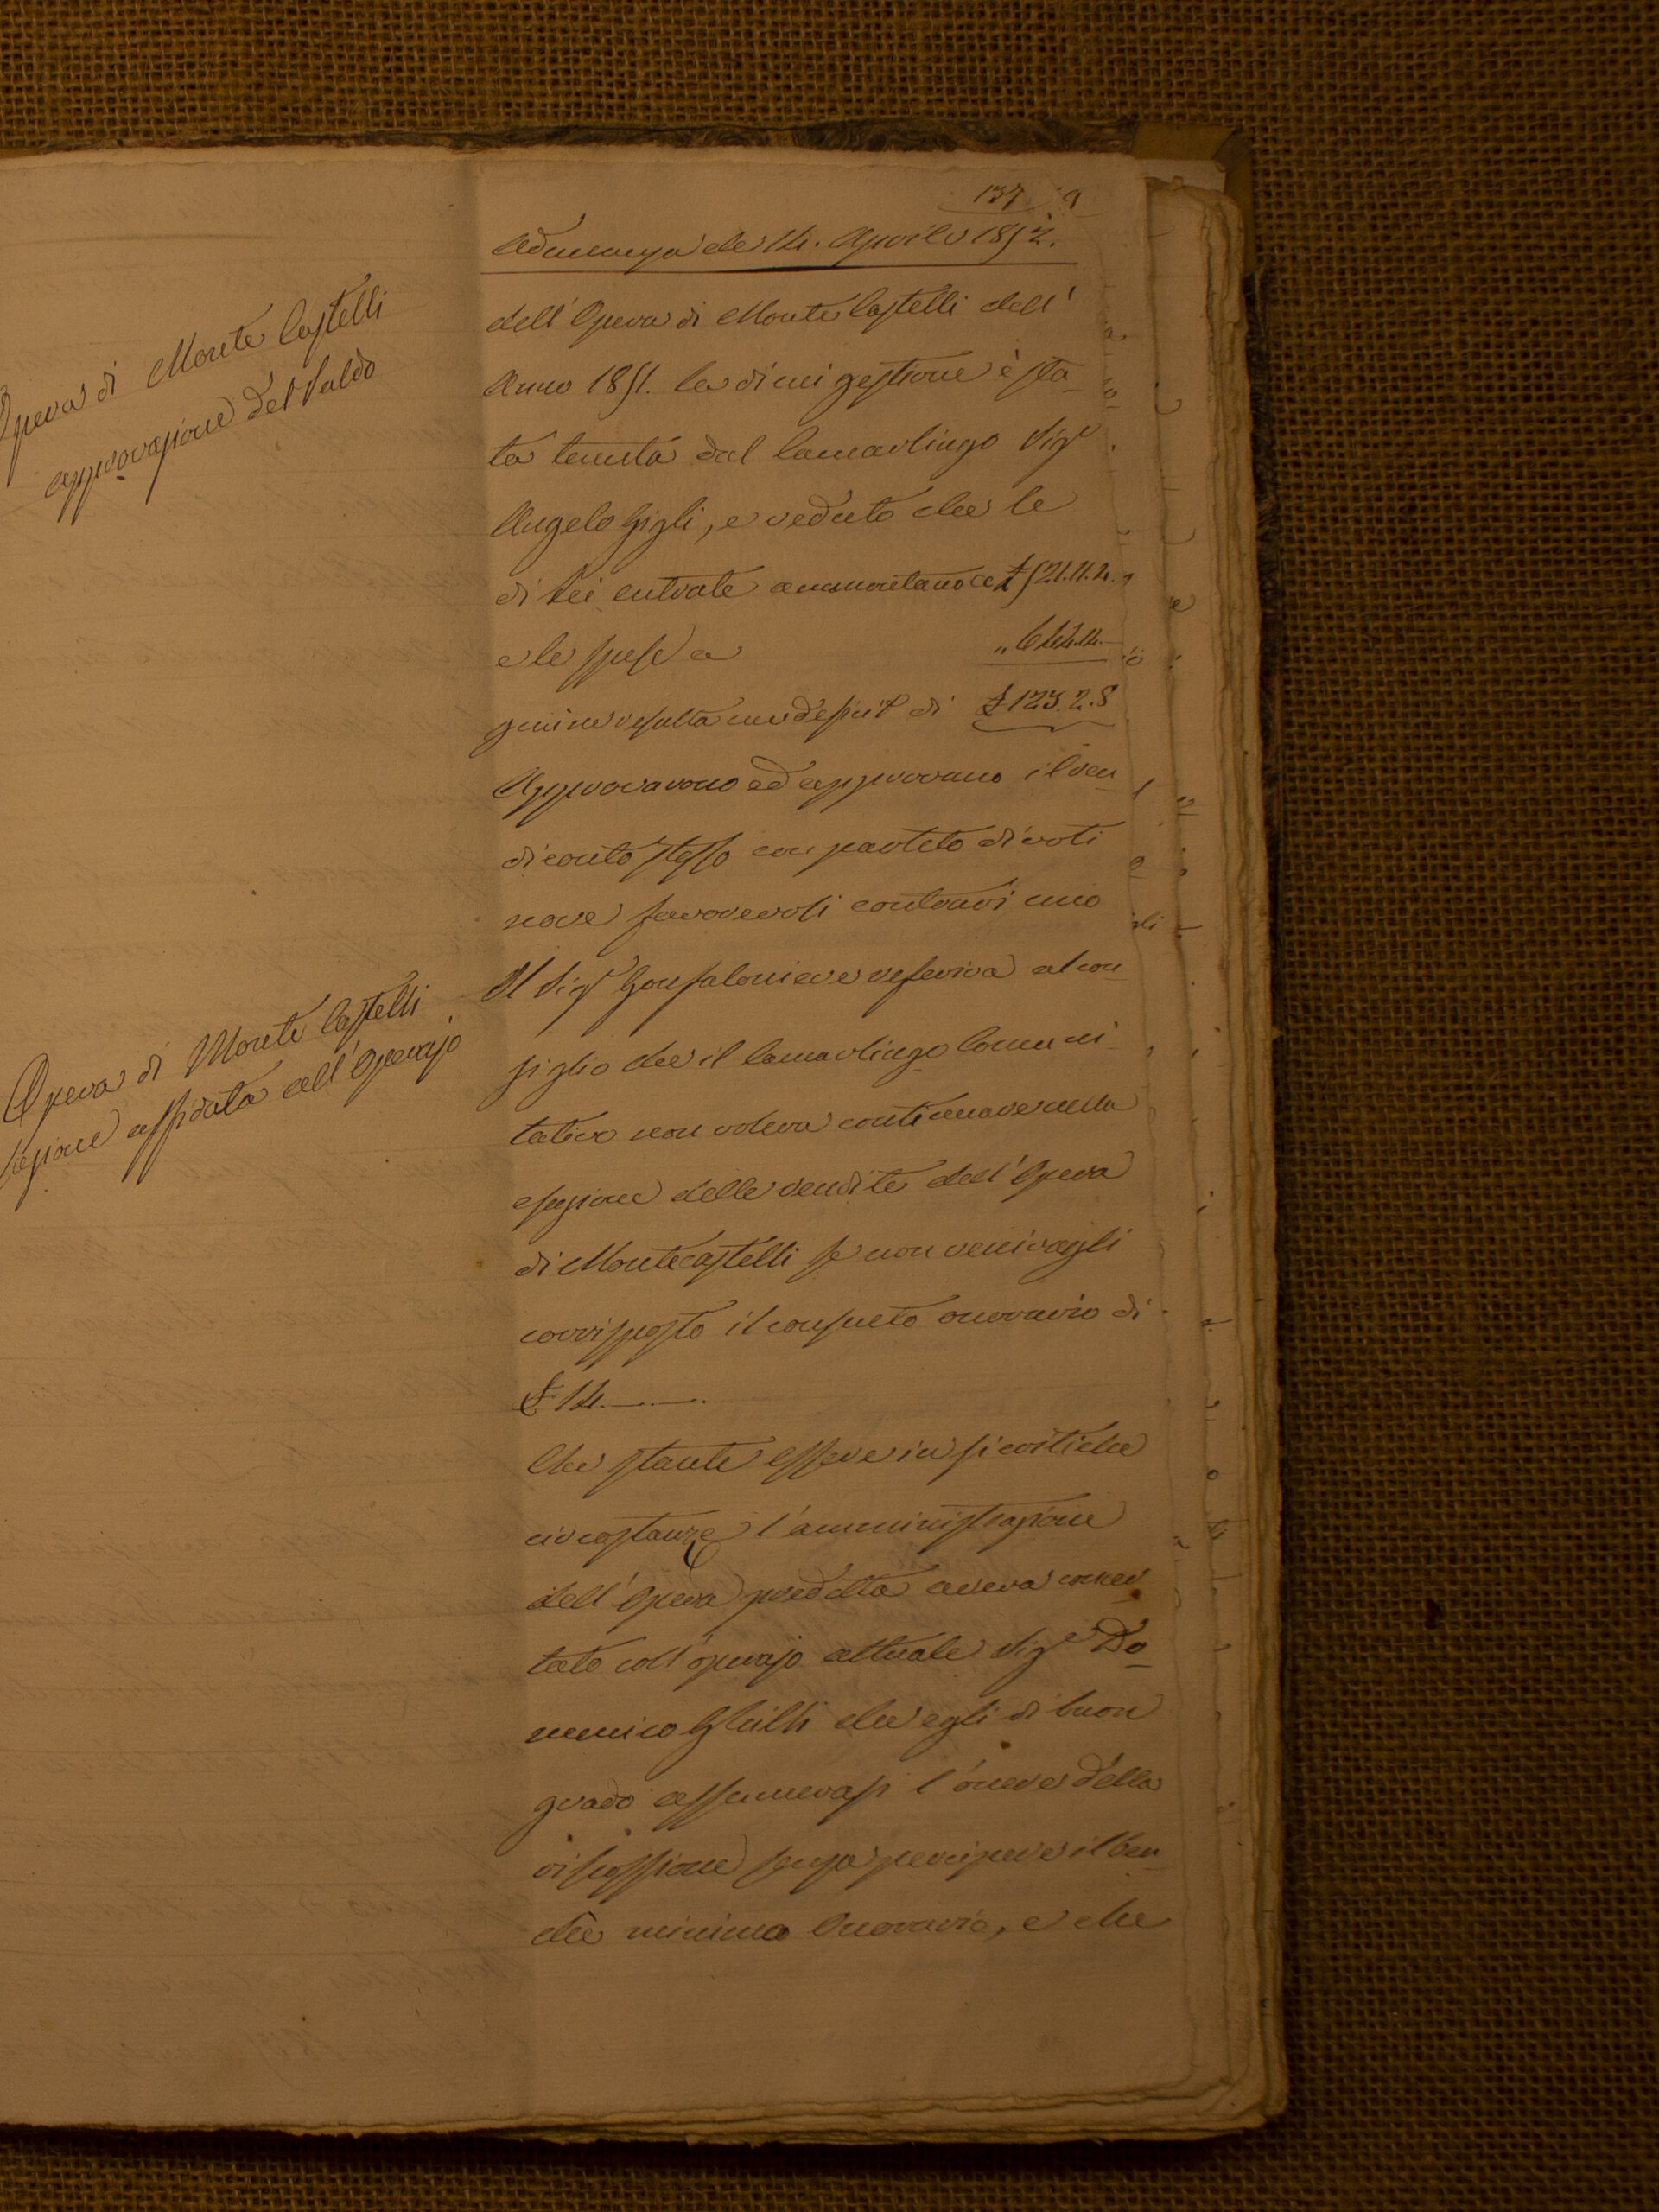 137 9
Adunanza de' 14. Aprile 1852.
Opera di Monte Castelli
approvazione del Saldo
dell'Opera di Monte Castelli dell'
Anno 1851. la di cui gestione è sta-
ta tenuta dal Camarlingo Sigr
Angelo Gigli, e veduto che le
di lei entrate ammontano a £ 521.11.4.
e le spese a " 644.14.—
quine resulta un deficit di £ 123.2.8
Approvarono ed approvano il ren
diconto stesso con partito di voti
nove favorevoli contrari uno
Opera di Monte Castelli
affidata all'Operajo
Il Sigr Gonfaloniere referiva al con
siglio che il Camarlingo Comuni-
tativo non voleva continuare nella
esazione delle rendite dell'Opera
di Montecastelli se non venivagli
corrisposto il consueto onorario di
£ 14.—.—.
Che stante essere in sì critiche
circostanze l'amministrazione
dell'Opera predetta aveva concer
tato coll'operajo attuale Sigr Do-
menico che egli di buon
grado assumevasi l'onere della
riscossione senza percipere il ben
chè minimo Onorario, e che